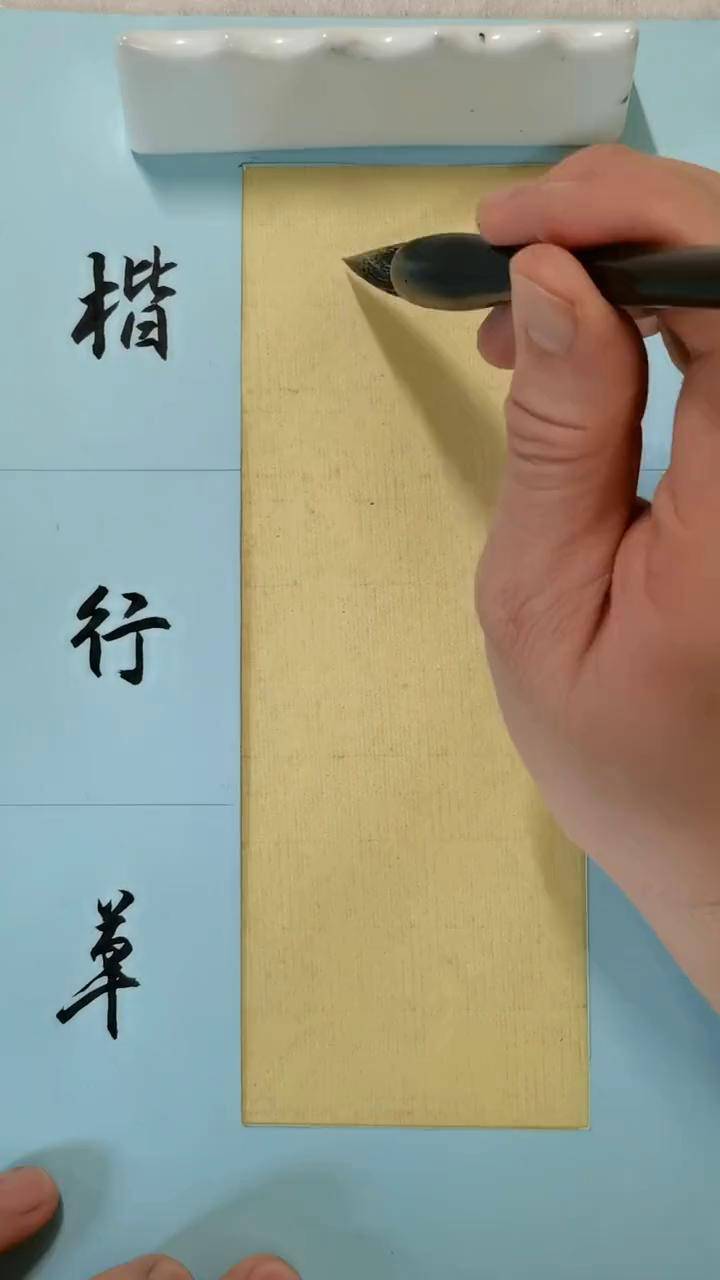 楷
行
草